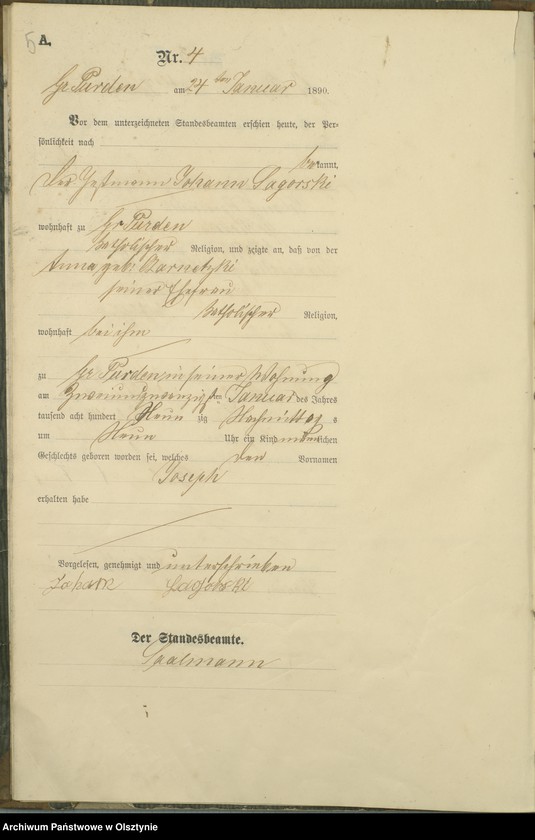 A.
Nr. 4
Gr Purden am 24 ten Januar 1890.
Vor dem unterzeichneten Standesbeamten erschien heute, der Per-
sönlichkeit nach
bekannt,
Johann Lagorski
wohnhaft zu Gr Purden
katholischer Religion, und zeigte an, daß von der
Anna geb: Czarnetzki
seiner Ehefrau
katholischer Religion,
wohnhaft bei ihm
zu Gr Purden in seiner Wohnung
am Zweiundzwanzigsten Januar des Jahres
tausend acht hundert Neunzig Nachmittags
um Neun Uhr ein Kind männlichen
Geschlechts geboren worden sei, welches den Vornamen
Joseph
erhalten habe
Vorgelesen, genehmigt und unterschrieben
Johann Lagorski
Der Standesbeamte.
Archiwum Państwowe w Olsztynie